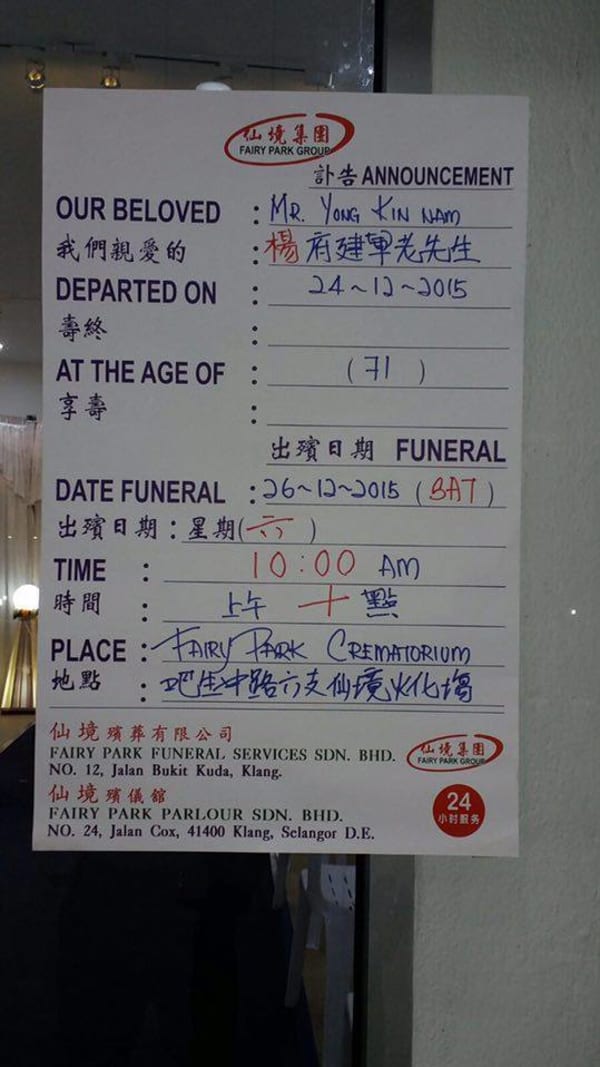 仙境集團
FAIRY PARK GROUP
訃告 ANNOUNCEMENT
OUR BELOVED : MR. YONG KIN NAM
我們親愛的 : 楊府建軍老先生
DEPARTED ON : 24~12~2015
壽終 :
AT THE AGE OF : (71)
享壽 :
出殯日期 FUNERAL
DATE FUNERAL : 26~12~2015 (SAT)
出殯日期：星期(六)
TIME : 10:00 AM
時間 : 上午 十 點
PLACE : FAIRY PARK CREMATORIUM
地點 : 吧生中路六支仙境火化場
仙境殯葬有限公司
FAIRY PARK FUNERAL SERVICES SDN. BHD.
NO. 12, Jalan Bukit Kuda, Klang.
仙境集團
FAIRY PARK GROUP
仙境殯儀館
FAIRY PARK PARLOUR SDN. BHD.
NO. 24, Jalan Cox, 41400 Klang, Selangor D.E.
24
小时服务